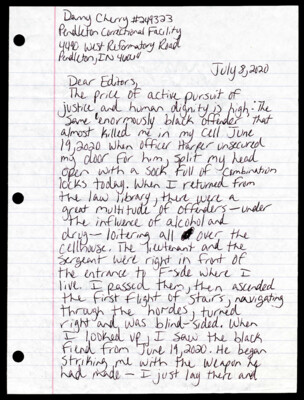 Danny Cherry #249323
Pendleton Correctional Facility
4490 West Reformatory Road
Pendleton, IN 46064
July 8, 2020
Dear Editors,
The price of active pursuit of
justice and human dignity is high: The
same "enormously black offender" that
almost killed me in my cell June
19, 2020 when Officer Harper unsecured
my door for him, split my head
open with a sock full of combination
locks today. When I returned from
the law library, there were a
great multitude of offenders — under
the influence of alcohol and
drug — loitering all over the
cellhouse. The lieutenant and the
Sergeant were right in front of
the entrance to F-side where I
live. I passed them, then ascended
the first flight of stairs, navigating
through the hordes, turned
right and was blind-sided. When
I looked up, I saw the black
fiend from June 19, 2020. He began
striking me with the weapon he
had made — I just lay there and